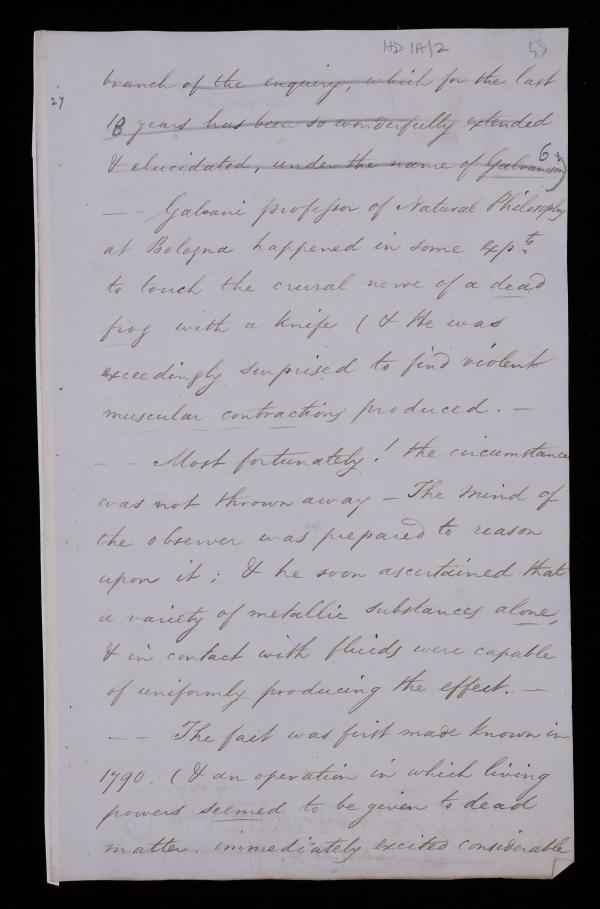 HD 1A/2 53
branch of the enquiry, which for the last
27
18 years has been so wonderfully extended
& elucidated, under the name of Galvanism)
6
— — Galvani professor of Natural Philosophy
at Bologna happened in some expts.
to touch the crural nerve of a dead
frog with a knife (& He was
exceedingly surprised to find violent
muscular contractions produced. —
— — Most fortunately! the circumstance
was not thrown away — The mind of
the observer was prepared to reason
upon it; & he soon ascertained that
a variety of metallic substances alone,
& in contact with fluids were capable
of uniformly producing the effect. —
— — The fact was first made known in
1790. (& an operation in which living
powers seemed to be given to dead
matter. immediately excited considerable